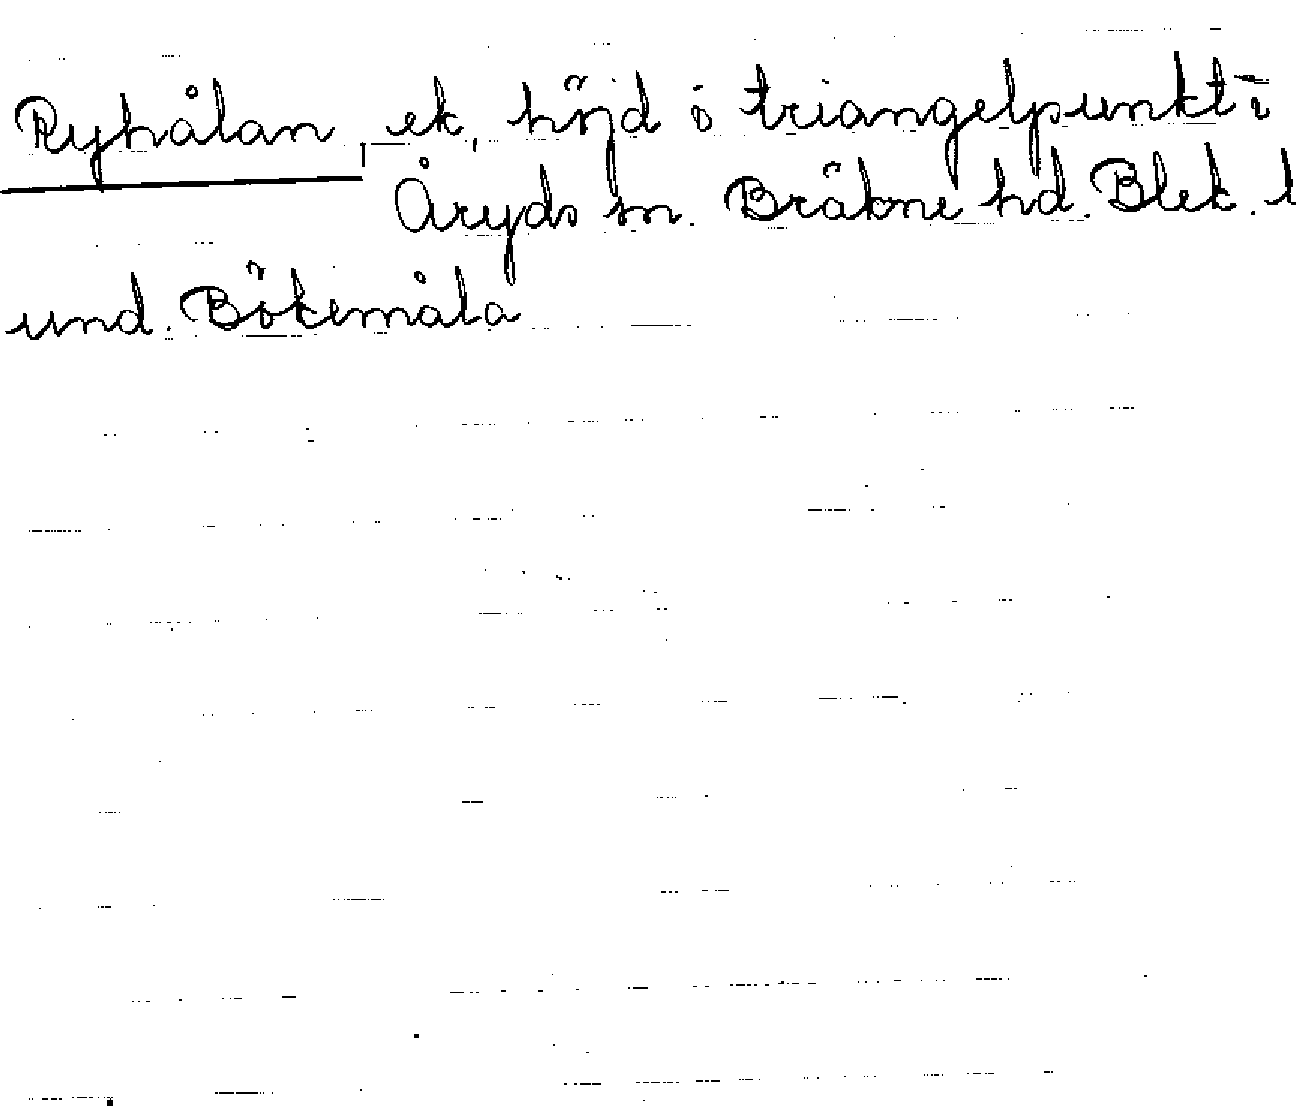 Ryhålan, ek, höjd o triangelpunkt i
Åryds sn. Bräkne hd. Blek. l
und. Bökemåla